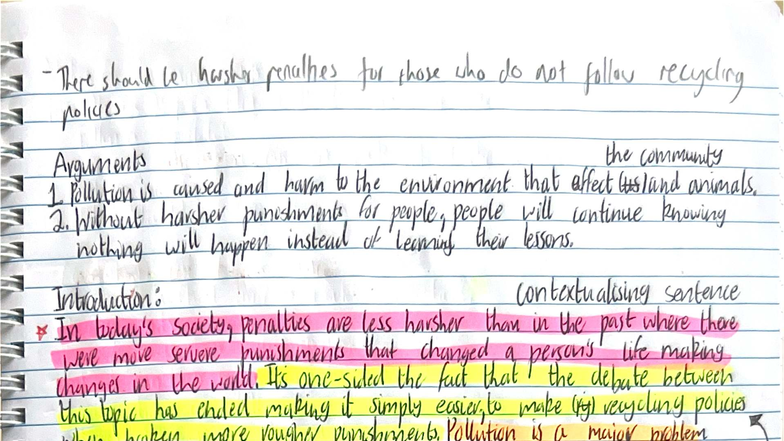 - There should be harsher penalties for those who do not follow recycling
policies
Arguments
the community
1. Pollution is caused and harm to the environment that affect (us) and animals.
2. Without harsher punishments for people, people will continue knowing
nothing will happen instead of learning their lessons.
Introduction:
contextualising sentence
In today's society, penalties are less harsher than in the past where there
were more servere punishments that changed a person's life making
changes in the world. It's one-sided the fact that the debate between
this topic has ended making it simply easier, to make recycling policies
when broken more rougher punishments. Pollution is a major problem